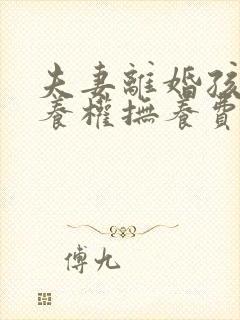 夫妻離婚孩
養權撫養費
傅九